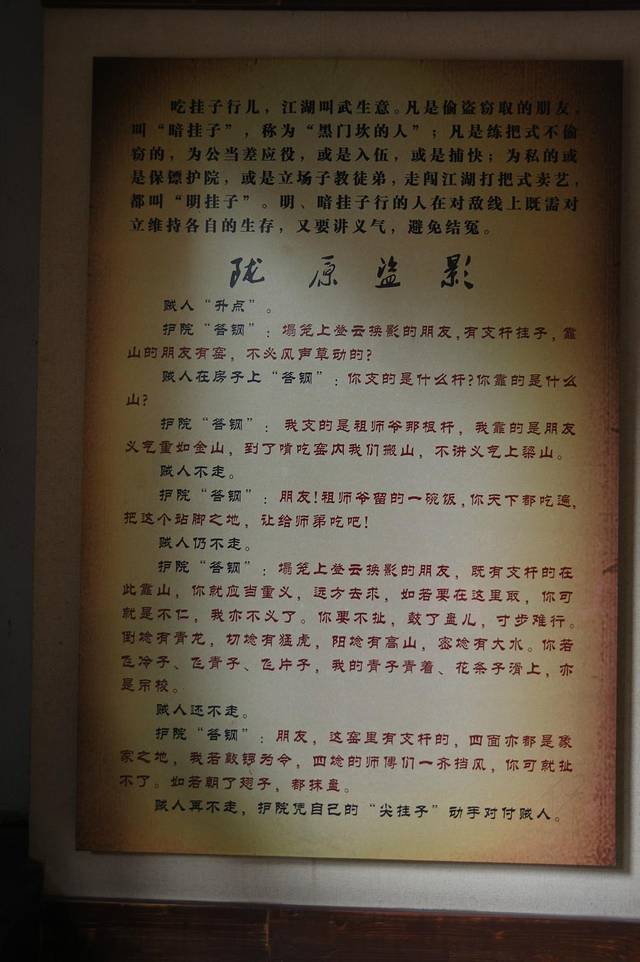 吃挂子行儿，江湖叫武生意。凡是偷盗窃取的朋友，
叫“暗挂子”，称为“黑门坎的人”；凡是练把式不偷
窃的，为公当差应役，或是入伍，或是捕快；为私的或
是保镖护院，或是立场子教徒弟，走闯江湖打把式卖艺，
都叫“明挂子”。明、暗挂子行的人在对敌线上既需对
立维持各自的生存，又要讲义气，避免结冤。
陇原盗影
贼人“升点”。
护院“答钢”：塌笼上登云换影的朋友，有支杆挂子，靠
山的朋友有窑，不必风声草动的?
贼人在房子上“答钢”：你支的是什么杆?你靠的是什么
山?
护院“答钢”：我支的是祖师爷那根杆，我靠的是朋友
义气重如金山，到了啃吃窑内我们搬山，不讲义气上梁山。
贼人不走。
护院“答钢”：朋友!祖师爷留的一碗饭，你天下都吃遍，
把这个站脚之地，让给师弟吃吧!
贼人仍不走。
护院“答钢”：塌笼上登云换影的朋友，既有支杆的在
此靠山，你就应当重义，远方去求，如若要在这里取，你可
就是不仁，我亦不义了。你要不扯，鼓了盘儿，寸步难行。
倒埝有青龙，切埝有猛虎，阳埝有高山，密埝有大水。你若
飞冷子、飞青子、飞片子，我的青子青着、花条子滑上，亦
是吊梭。
贼人还不走。
护院“答钢”：朋友，这窑里有支杆的，四面亦都是象
家之地，我若敲锣为令，四埝的师傅们一齐挡风，你可就扯
不了。如若朝了翅子，都抹盘。
贼人再不走，护院凭自己的“尖挂子”动手对付贼人。